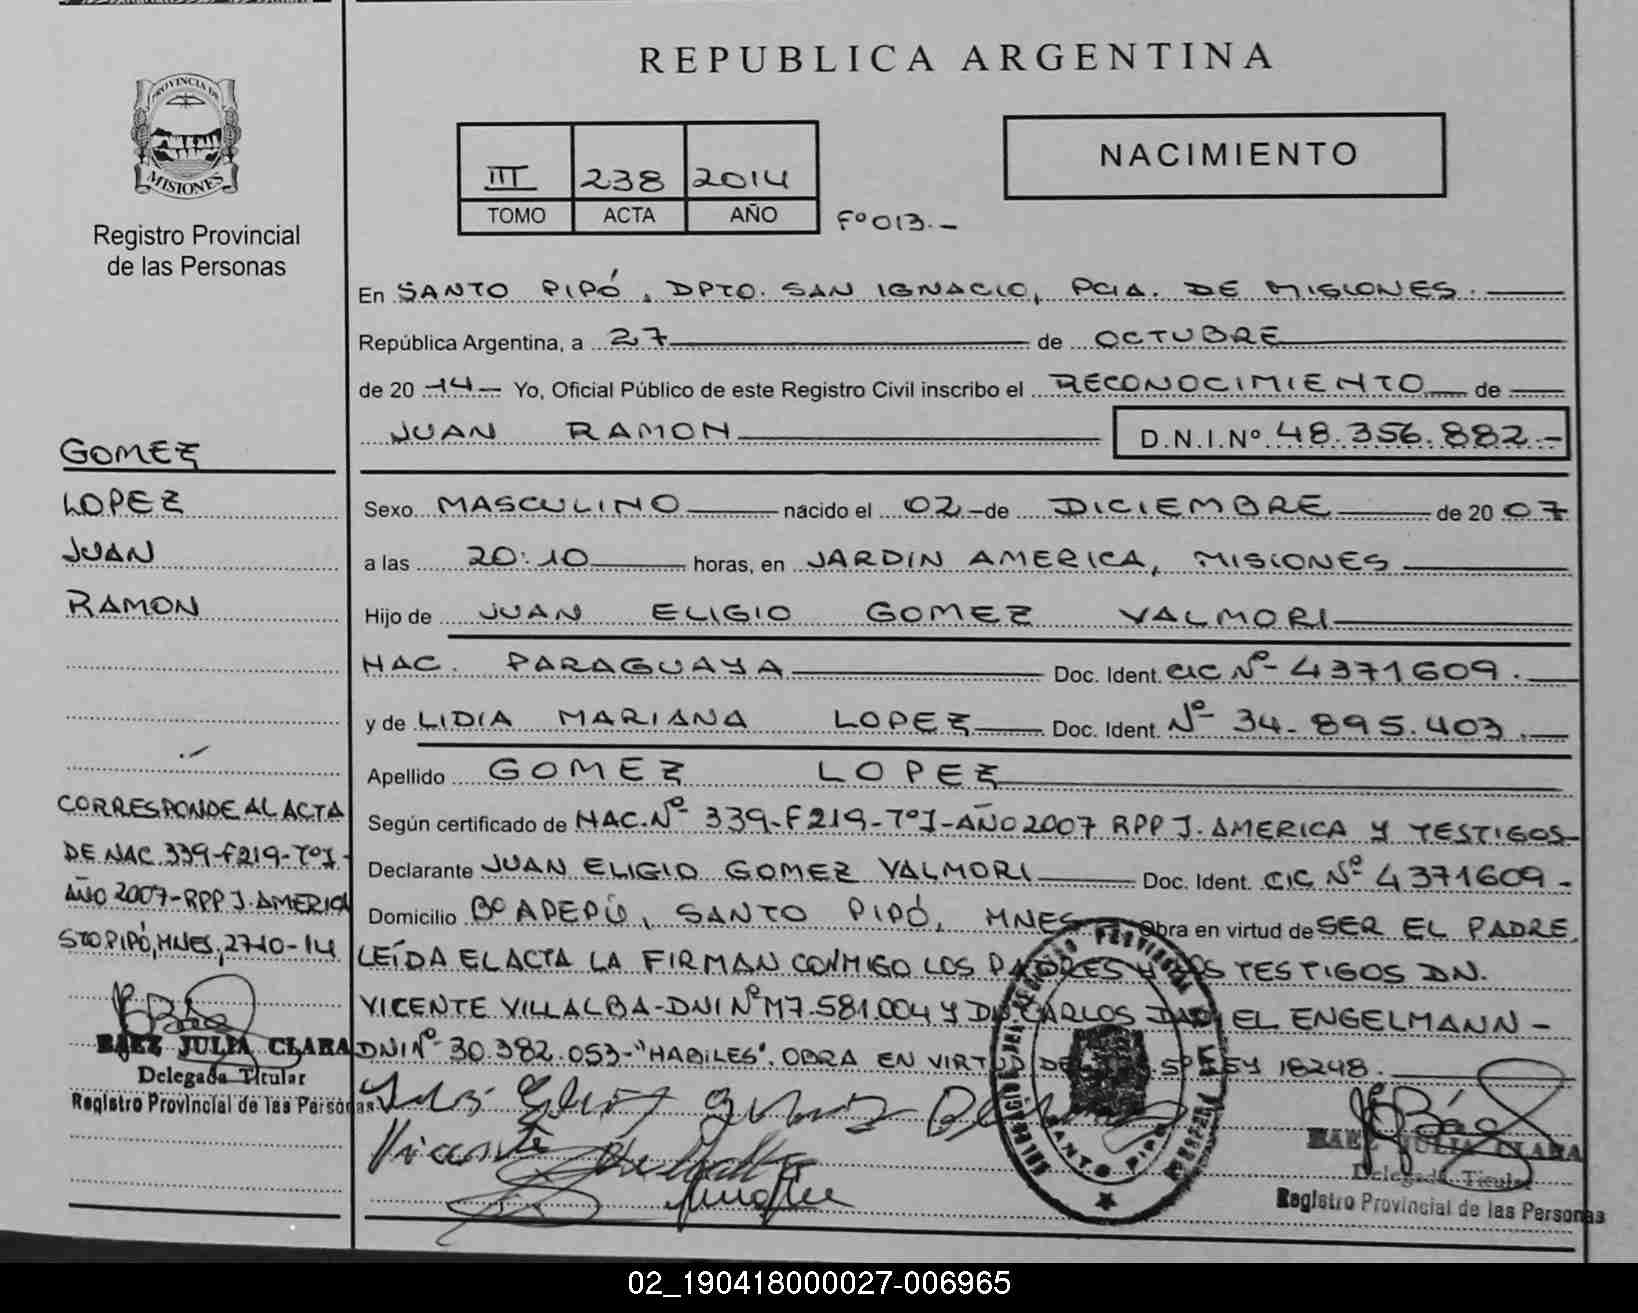 REPUBLICA ARGENTINA
PROVINCIA DE
MISIONES
Registro Provincial
de las Personas
NACIMIENTO
III 238 2014
TOMO ACTA AÑO
Fº013.-
En SANTO PIPÓ, DPTO. SAN IGNACIO, PCIA. DE MISIONES.
República Argentina, a 27 de OCTUBRE
de 20 14 Yo, Oficial Público de este Registro Civil inscribo el RECONOCIMIENTO de
JUAN RAMON D.N.I.Nº 48.356.882.-
Sexo MASCULINO nacido el 02 de DICIEMBRE de 20 07
a las 20:10 horas, en JARDIN AMERICA, MISIONES
Hijo de JUAN ELIGIO GOMEZ VALMORI
NAC. PARAGUAYA Doc. Ident. CIC Nº 4371609.
y de LIDIA MARIANA LOPEZ Doc. Ident. Nº 34.895.403.
Apellido GOMEZ LOPEZ
Según certificado de NAC. Nº 339-F219-TºI-AÑO 2007 RPP J. AMERICA Y TESTIGOS-
Declarante JUAN ELIGIO GOMEZ VALMORI Doc. Ident. CIC Nº 4371609-
Domicilio Bº APEPÚ, SANTO PIPÓ, MNES Obra en virtud de SER EL PADRE.
LEÍDA EL ACTA LA FIRMAN CONMIGO LOS PADRES Y LOS TESTIGOS DN.
VICENTE VILLALBA-DNI Nº M7.581.004 Y DN CARLOS DANIEL ENGELMANN-
DNI Nº 30.382.053-"HABILES". OBRA EN VIRTUD DEL 5º LEY 18248.
GOMEZ
LOPEZ
JUAN
RAMON
CORRESPONDE AL ACTA
DE NAC. 339-F219-TºI-
AÑO 2007-RPP J. AMERICA
STO PIPÓ, MNES, 27-10-14
BAEZ JULIA CLARA
Delegada Titular
Registro Provincial de las Personas
Vicente
SANTO PIPO
BAEZ JULIA CLARA
Delegada Titular
Registro Provincial de las Personas
02_190418000027-006965